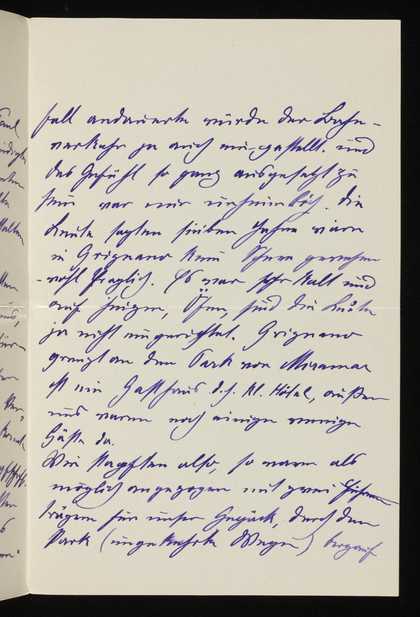 fall andauerte würde der Bahn-
verkehr ja auch ein-gestellt. und
das Gefühl so ganz ausgesetzt zu
sein war mir unheimlich. Die
Leute sagten sieben Jahre wäre
in Grignano kein Schnee gewesen
Es war sehr kalt und
auf Öfen, sind die Leute
ja nicht eingerichtet. Grignano
grenzt an den Park von Miramar
ist ein Gasthaus d.h. kl. Hôtel, außer
uns waren noch einige wenige
Gäste da.
Wir stapften also, so warm als
möglich angezogen mit zwei
trägern für unser Gepäck, durch den
Park (ungekehrte Wege) bergauf